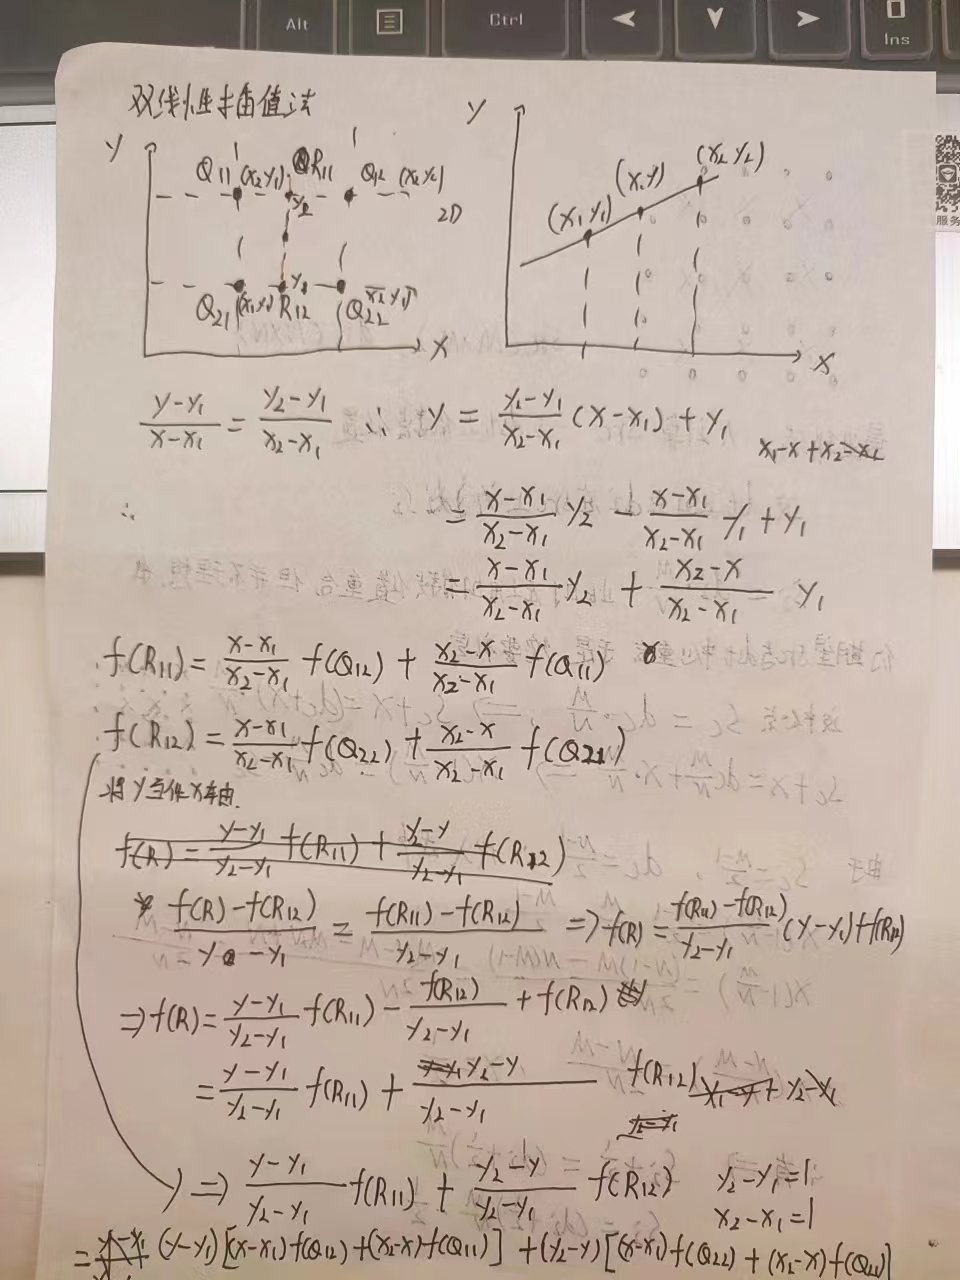 Alt
Ctrl
Ins
双线性插值法
Y
Q11 (x2 y1) R11 Q12 (x2 y2)
y2
2D
y1
Q21 (x1 y1) R12 Q22 (x2 y1)
X
Y
(x2 y2)
(x y)
(x1 y1)
X
服务
(y-y1)/(x-x1) = (y2-y1)/(x2-x1) ∴ y = (y2-y1)/(x2-x1) (x-x1) + y1
x1-x+x2-x1
∴ = (x-x1)/(x2-x1) y2 - (x-x1)/(x2-x1) y1 + y1
= (x-x1)/(x2-x1) y2 + (x2-x)/(x2-x1) y1
f(R11) = (x-x1)/(x2-x1) f(Q12) + (x2-x)/(x2-x1) f(Q11)
f(R12) = (x-x1)/(x2-x1) f(Q22) + (x2-x)/(x2-x1) f(Q21)
将Y当作X轴
f(R) = (y-y1)/(y2-y1) f(R11) + (y2-y)/(y2-y1) f(R12)
(f(R)-f(R12))/(y-y1) = (f(R11)-f(R12))/(y2-y1) => f(R) = (f(R11)-f(R12))/(y2-y1) (y-y1) + f(R12)
=> f(R) = (y-y1)/(y2-y1) f(R11) - f(R12)/(y2-y1) + f(R12)
= (y-y1)/(y2-y1) f(R11) + (y2-y)/(y2-y1) f(R12)
=> (y-y1)/(y2-y1) f(R11) + (y2-y)/(y2-y1) f(R12) y2-y1=1
x2-x1=1
= (y-y1)[(x-x1)f(Q12)+(x2-x)f(Q11)] + (y2-y)[(x-x1)f(Q22)+(x2-x)f(Q21)]